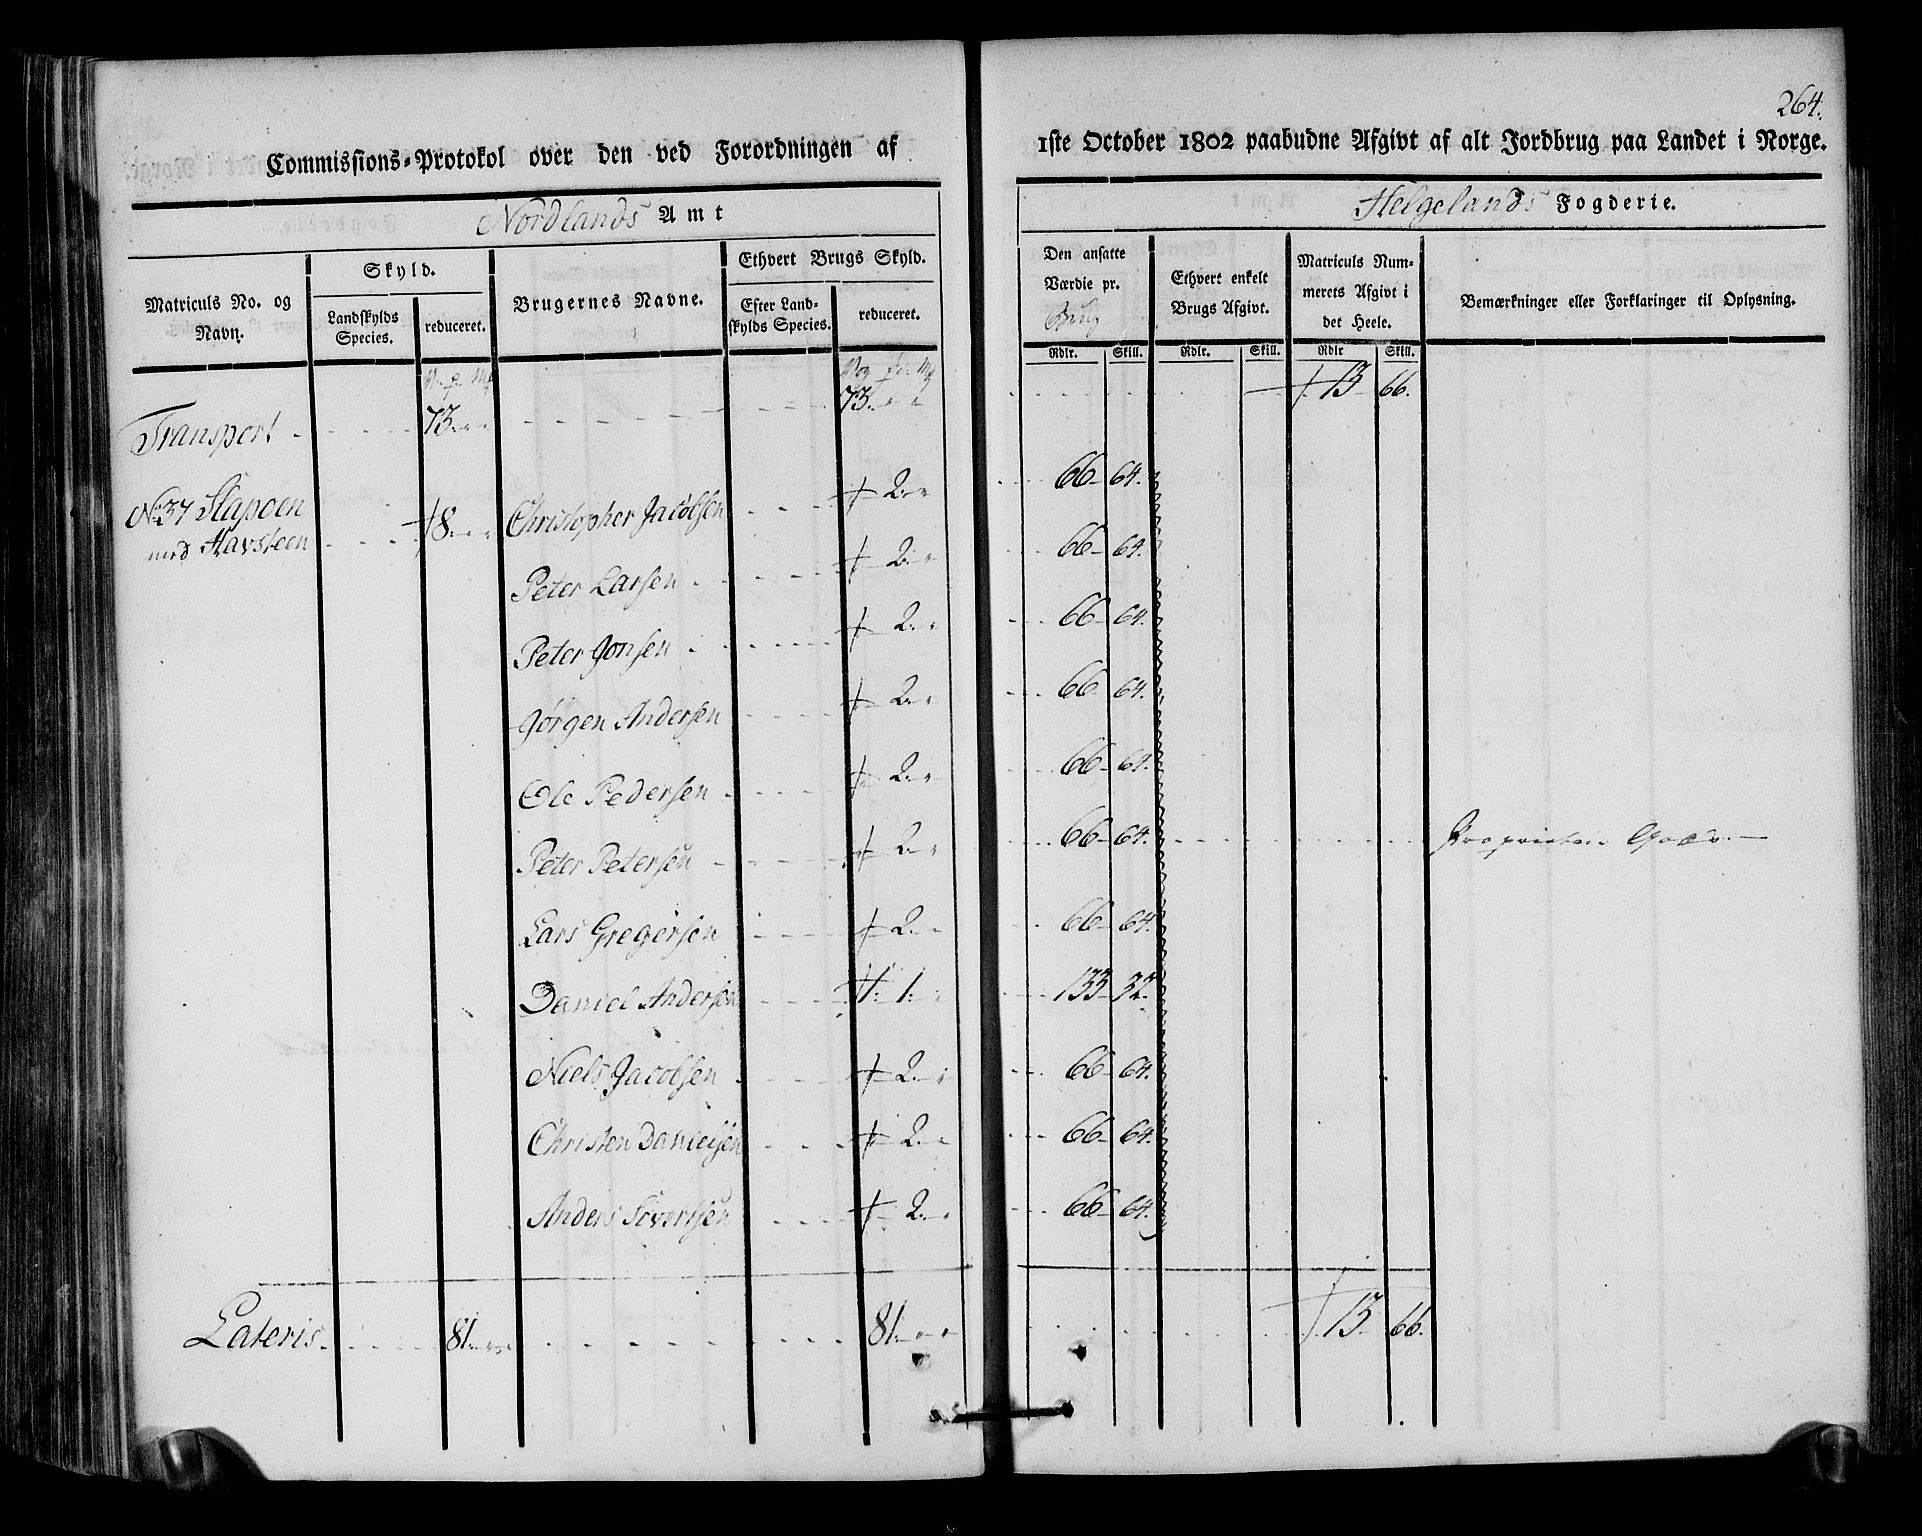 264.
Commissions-Protokol over den ved Forordningen af
1ste October 1802 paabudne Afgivt af alt Jordbrug paa Landet i Norge.
Nordlands Amt
Helgelands Fogderie.
Matriculs No. og Navn.
Skyld.
Landskylds Species.
reduceret.
Brugernes Navne.
Ethvert Brugs Skyld.
Efter Land-skylds Species.
reduceret.
Den ansatte Værdie pr. Brug
Ethvert enkelt Brugs Afgivt.
Matriculs Num-merets Afgivt i det Heele.
Bemærkninger eller Forklaringer til Oplysning.
Rdlr. Skill. Rdlr. Skill. Rdlr Skill.
Transport 73 73 13 66.
No 37 Slapøen 8 Christopher Jacobsen 2 66 64.
med Havsteen
Peter Larsen 2 66 64.
Peter Jonsen 2 66 64.
Jørgen Andersen 2 66 64.
Ole Pedersen 2 66 64.
Peter Petersen 2 66 64.
Lars Gregersen 2 66 64.
Daniel Andersen 1 133 32.
Niels Jacobsen 2 66 64.
Christen Danielsen 2 66 64.
Anders Sivertsen 2 66 64.
Lateris 81 81 13 66.